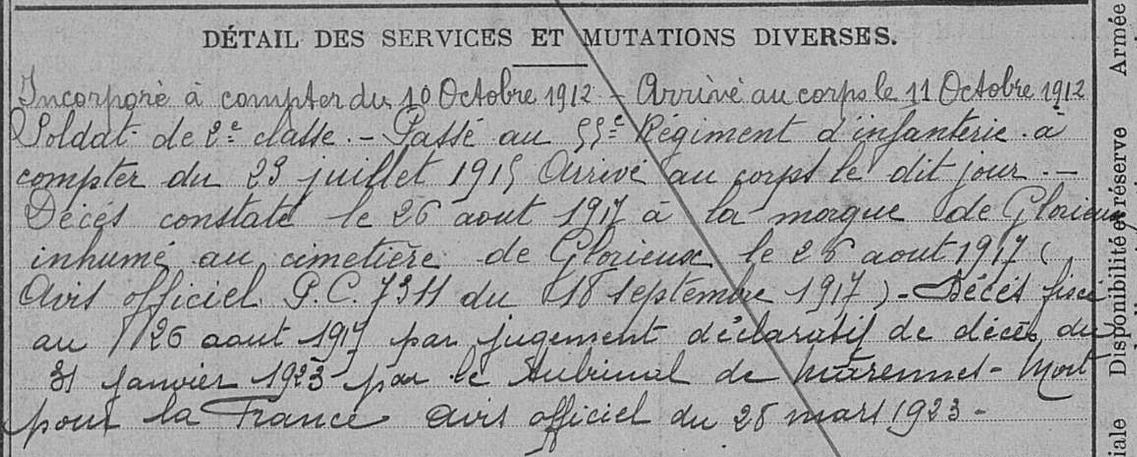 DÉTAIL DES SERVICES ET MUTATIONS DIVERSES.
Incorporé à compter du 10 Octobre 1912 - Arrivé au corps le 11 Octobre 1912
Soldat de 2e classe. - Passé au 55e Régiment d'infanterie à
compter du 23 juillet 1915 Arrivé au corps le dit jour. -
Décés constaté le 26 aout 1917 à la morgue de Glorieux
inhumé au cimetière de Glorieux le 26 aout 1917 (
Avis officiel P.C. 7311 du 18 septembre 1917) - Décés fixé
au 26 aout 1917 par jugement déclaratif de décès du
31 janvier 1923 par le tribunal de Marennes - Mort
pour la France avis officiel du 28 mars 1923 -
Armée
Disponibilité et réserve
iale